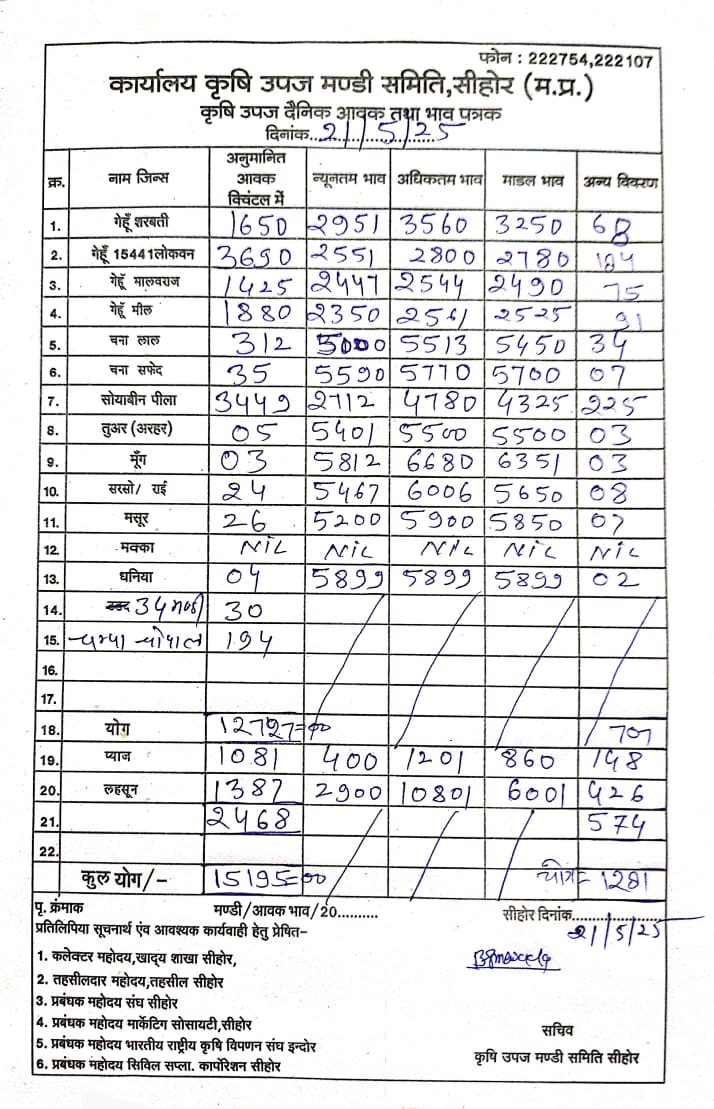 फोन : 222754,222107
कार्यालय कृषि उपज मण्डी समिति,सीहोर (म.प्र.)
कृषि उपज दैनिक आवक तथा भाव पत्रक
दिनांक..21/5/25
क्र. नाम जिन्स अनुमानित आवक क्विंटल में न्यूनतम भाव अधिकतम भाव माडल भाव अन्य विवरण
1. गेहूँ शरबती 1650 2951 3560 3250 68
2. गेहूँ 15441लोकवन 3690 2551 2800 2780 184
3. गेहूँ मालवराज 1425 2447 2544 2490 75
4. गेहूँ मील 1880 2350 2561 2525 91
5. चना लाल 312 5000 5513 5450 34
6. चना सफेद 35 5590 5770 5700 07
7. सोयाबीन पीला 3449 2712 4780 4325 225
8. तुअर (अरहर) 05 5401 5500 5500 03
9. मूँग 03 5812 6680 6351 03
10. सरसो/ राई 24 5467 6006 5650 08
11. मसूर 26 5200 5900 5850 07
12. मक्का NIL NIL NIL NIL NIL
13. धनिया 04 5899 5899 5899 02
14. 30
15. 194
16.
17.
18. योग 12727=00 707
19. प्याज 1081 400 1201 860 148
20. लहसून 1387 2900 10801 6001 426
21. 2468 574
22.
कुल योग/- 15195=00 योग= 1281
पृ. क्रंमाक मण्डी/आवक भाव/20.......... सीहोर दिनांक..21/5/25
प्रतिलिपिया सूचनार्थ एंव आवश्यक कार्यवाही हेतु प्रेषित-
1. कलेक्टर महोदय,खाद्य शाखा सीहोर,
2. तहसीलदार महोदय,तहसील सीहोर
3. प्रबंधक महोदय संघ सीहोर
4. प्रबंधक महोदय मार्केटिग सोसायटी,सीहोर
5. प्रबंधक महोदय भारतीय राष्ट्रीय कृषि विपणन संघ इन्दोर
6. प्रबंधक महोदय सिविल सप्ला. कार्पोरेशन सीहोर
सचिव
कृषि उपज मण्डी समिति सीहोर